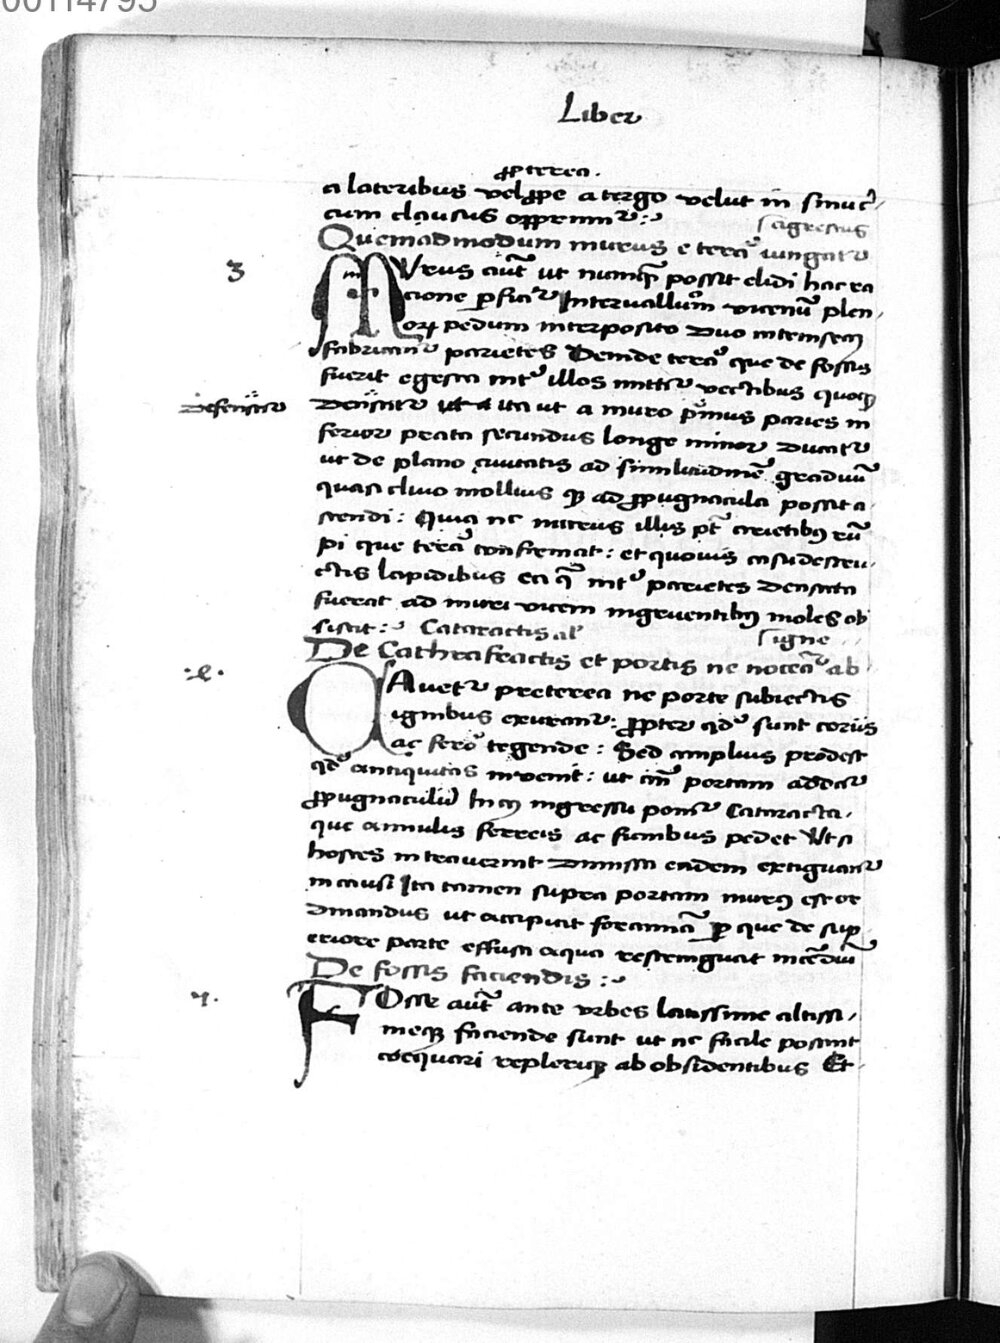 00114795
Liber
ꝓpterea.
a lateribus vel ꝓpe a tergo velut in sinuc̉
cum clausus opprimit᷑ :~
agrestus
Quemadmodum murus e terra iungatᷣ
3
MUrus aūt ut numꝗ possit elidi hac ra
cione ꝑficiᷣ Intervallum vicenū plen
oꝝ pedum interposito duo intrinsecꝰ
fabricanᷣ parietes Deinde terrᷓ que de fossis
fuerit egesta intᷣ illos mittiᷣ vectibus quoꝙ
densatᷣ
densatᷣ ita ut a muro pⁱmus paries in
ferior prata secundus longe minor ducatᷣ
ut de plano civitatis ad similitudinē graduū
quasi clivo mollius ꝙ ad ꝓpugnacula possit a
scendi : Quia nec murus illis pt̄ arietibꝫ rū
pi que terrᷓ confirmat : et quovis casu destru
ctis lapidibus ea qᷓ intᷣ parietes densata
fuerat ad muri vicem ingruentibꝫ moles ob
sistit :~ Cataractis al̓
igne
De Cathafractis et portis ne noceāᷣ ab
.e.
CAvetᷣ preterea ne porte subiectis
ignibus exuranᷣ : ꝓpter qd̓ sunt coriis
ac ferro tegende : Sed amplius prodest
qd̓ antiquitas invenit : ut añ portam addaᷣ
ꝓpugnaculū In cꝰ ingressu poniᷣ Cataracta
que annulis ferreis ac funibus pēdet Ut si
hostes intraverint dimissa eadem extiguanᷣ
inclusi Ita tamen supra portam murꝰ est or
dinandus ut accipiat foraminā ꝑ que de sup
eriore parte effusa aqua restringuat incēdiū
De fossis faciendis :~
.4.
FOsse aūt ante urbes latissime altissi
meꝙ faciende sunt ut nec facile possint
coequari replerique ab obsidentibus Et